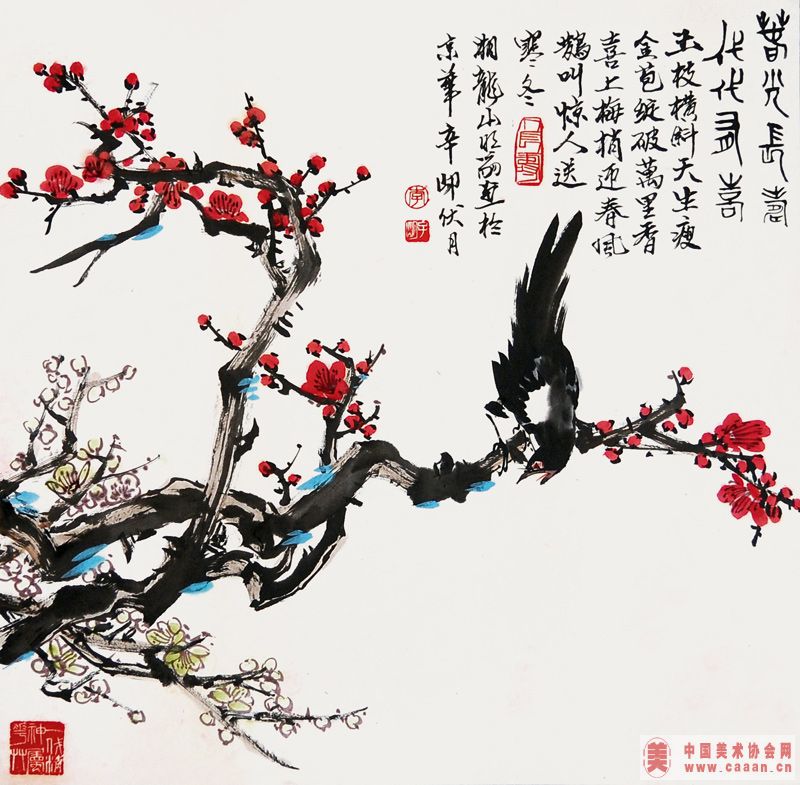 春光長壽
代代有喜
玉枝横斜天生瘦
金苞綻破萬里香
喜上梅梢迎春風
鵲叫惊人送
寒冬
湘龍山
於
京華辛卯伏月
美
中国美术协会网
www.caaan.cn